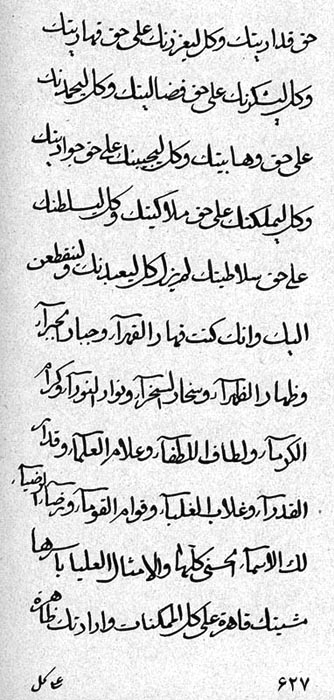 حق قدارييتك وكل ليعززنك على حق قهارييتك
وكل ليشكرنك على حق فضاليتك وكل ليحمدنك
على حق وهابيتك وكل ليجيبنك على حق جواديتك
وكل ليملكنك على حق ملاكيتك وكل ليسلطنك
على حق سلاطيتك لم يزل كل ليعبدنك ولينقطعن
اليك وانك كنت قهار القهرآء وجبار الجبرآء
وظهار الظهرآء وسخار السخرآء ونوار النورآء وكرام
الكرمآء ولطاف اللطفآء وعلام العلمآء وقدار
القدرآء وغلاب الغلبآء وقوام القومآء ورضآء الرضيآء
لك الاسمآء الحسنى كلها والامثال العليا باسرها
مشيتك قاهرة على كل الممكنات وارادتك ظاهرة
٦٢٧ على كل